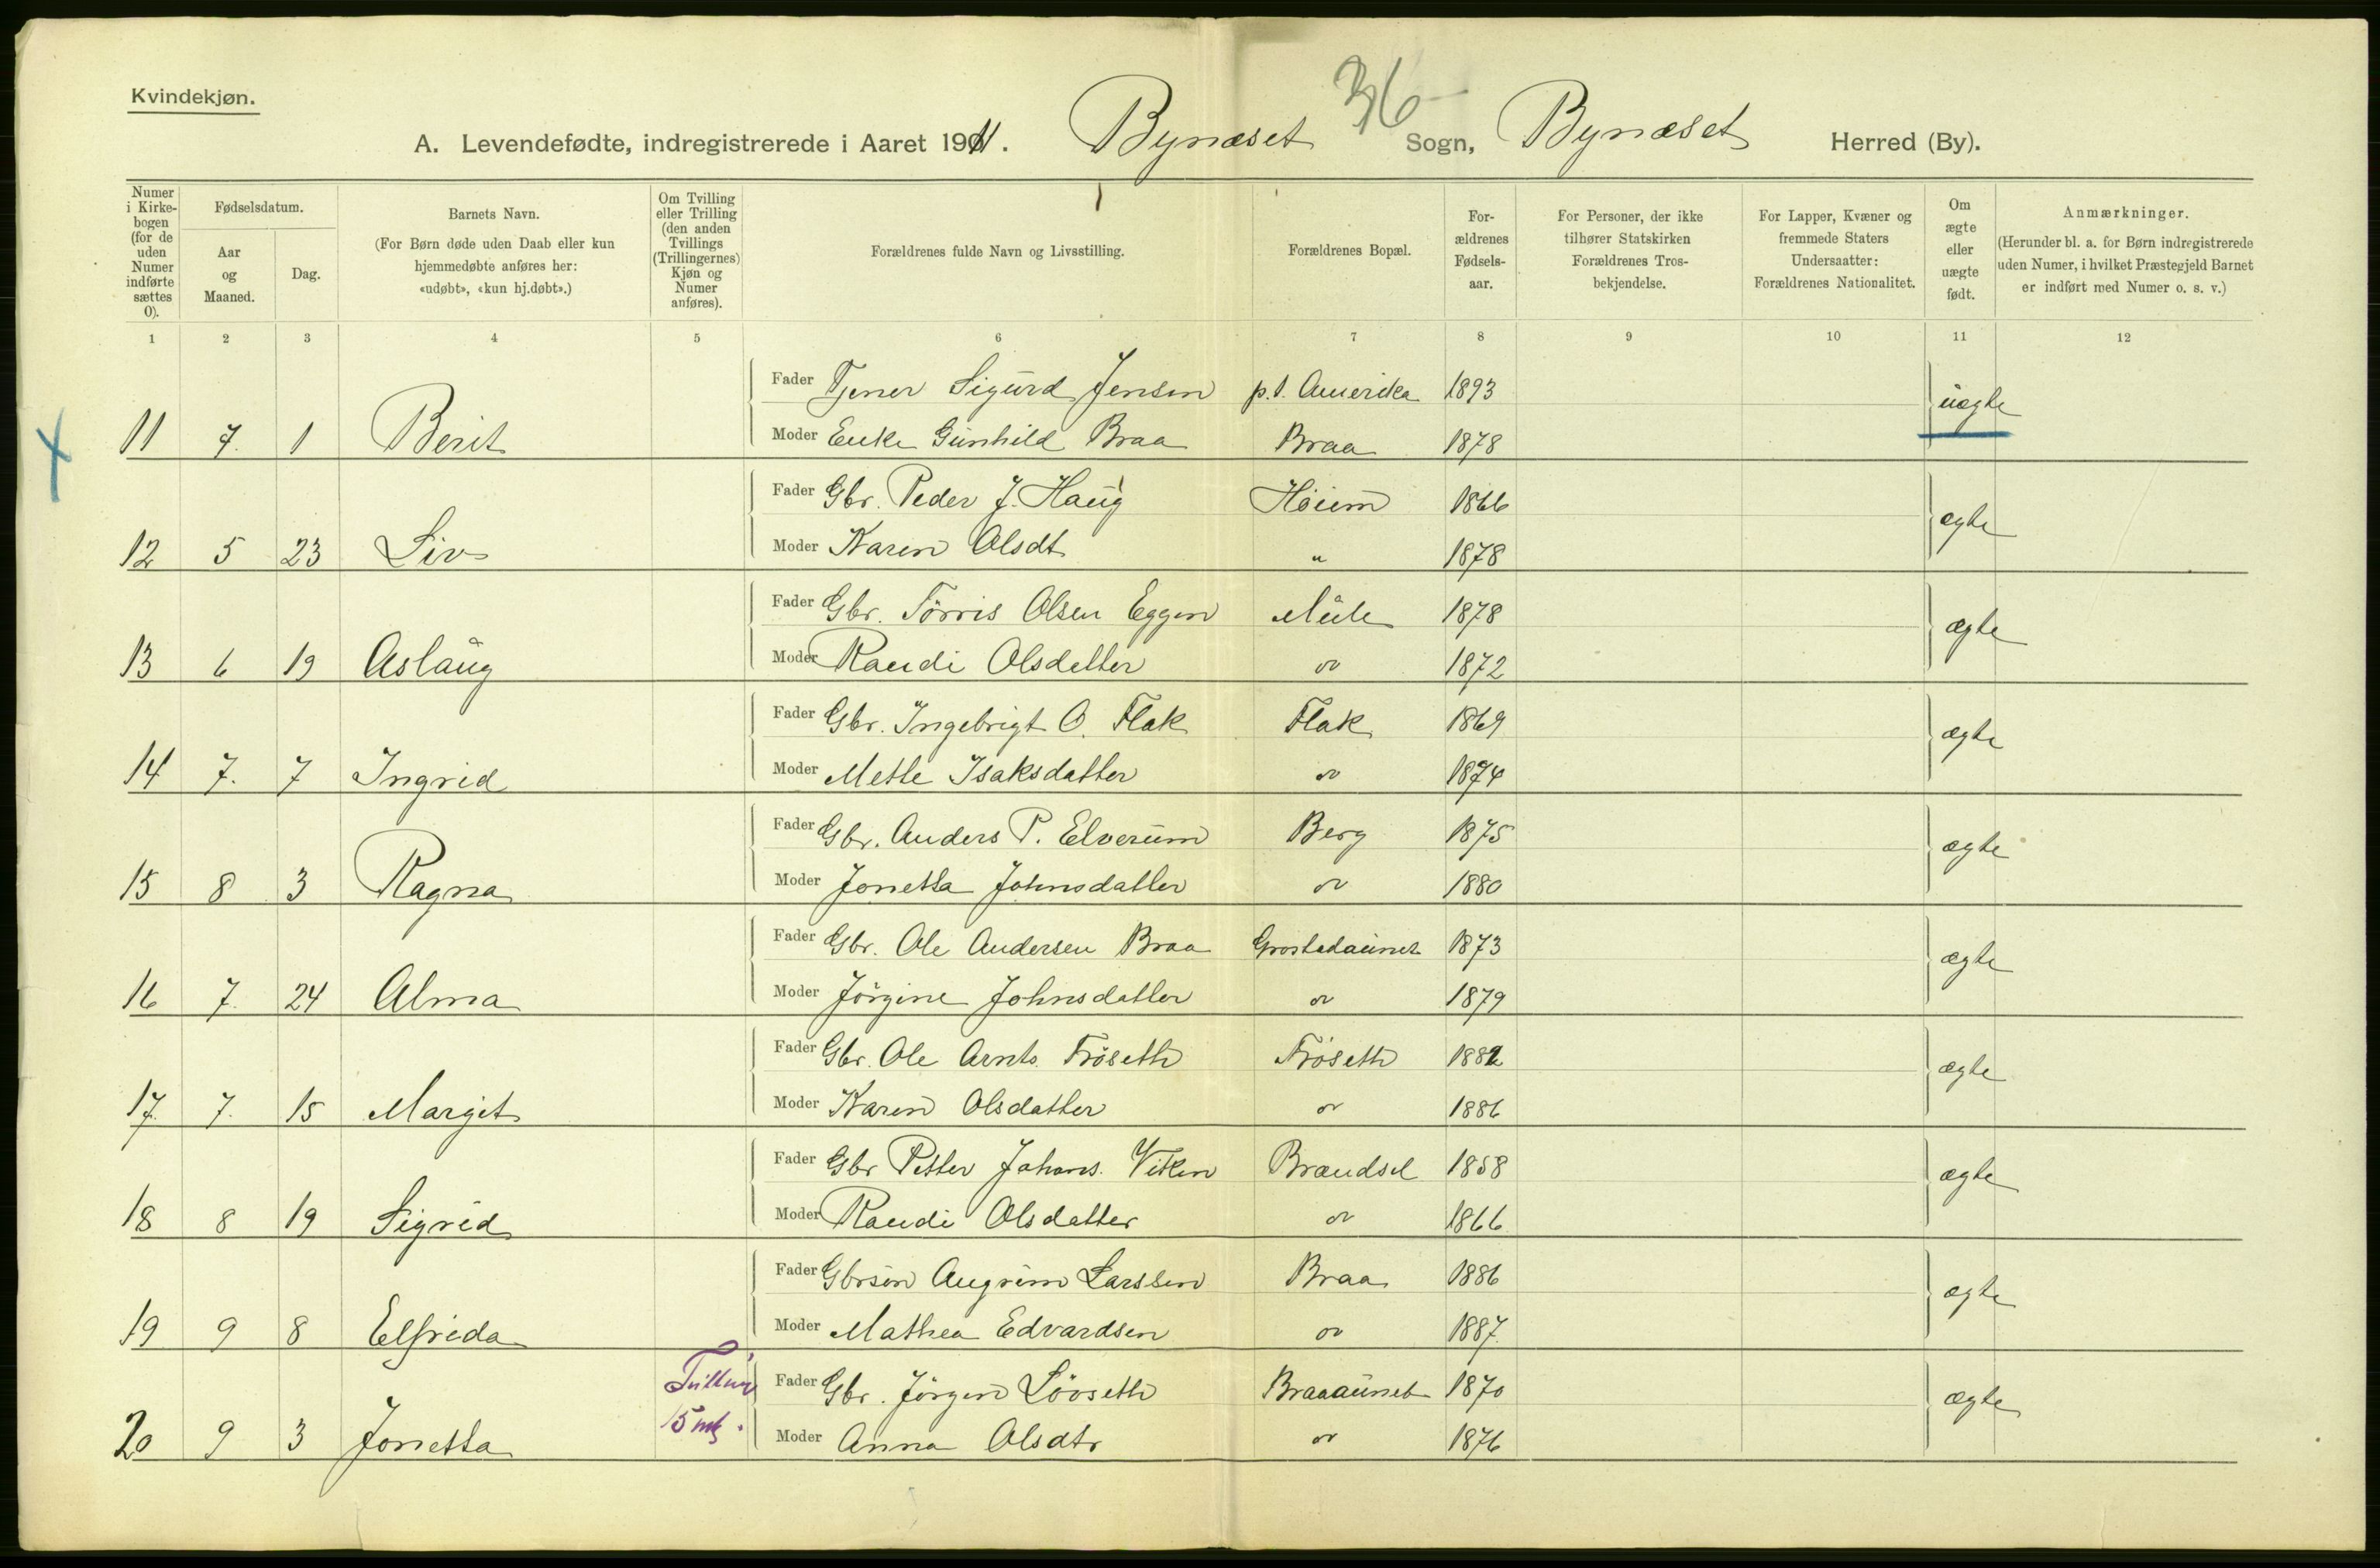 Kvindekjøn.
36
A. Levendefødte, indregistrerede i Aaret 1911. Bynæset Sogn, Bynæset Herred (By).
Numer i Kirkebogen (for de uden Numer indførte sættes 0).
Fødselsdatum.
Aar og Maaned.
Dag.
Barnets Navn.
(For Børn døde uden Daab eller kun hjemmedøbte anføres her: «udøbt», «kun hj.døbt».)
Om Tvilling eller Trilling (den anden Tvillings (Trillingernes) Kjøn og Numer anføres).
Forældrenes fulde Navn og Livsstilling.
Forældrenes Bopæl.
Forældrenes Fødselsaar.
For Personer, der ikke tilhører Statskirken Forældrenes Trosbekjendelse.
For Lapper, Kvæner og fremmede Staters Undersaatter: Forældrenes Nationalitet.
Om ægte eller uægte født.
Anmærkninger.
(Herunder bl. a. for Børn indregistrerede uden Numer, i hvilket Præstegjeld Barnet er indført med Numer o. s. v.)
1 2 3 4 5 6 7 8 9 10 11 12
Fader Tjener Sigurd Jensen p.t. Amerika 1893 uægte
11 7. 1 Berit Moder Enke Gunhild Braa Braa 1878
Fader Gbr. Peder J. Haug Høiem 1866 ægte
12 5 23 Liv Moder Karen Olsdt " 1878
Fader Gbr. Törris Olsen Eggen Mule 1878 ægte
13 6 19 Aslaug Moder Randi Olsdatter " 1872
Fader Gbr. Ingebrigt O. Flak Flak 1869 ægte
14 7. 7 Ingrid Moder Mette Isaksdatter " 1874
Fader Gbr. Anders P. Elverum Berg 1875 ægte
15 8 3 Ragna Moder Jonetta Johnsdatter " 1880
Fader Gbr. Ole Andersen Braa 1873 ægte
16 7. 24 Alma Moder Jörgine Johnsdatter " 1879
Fader Gbr. Ole Arnts. Frösetth Frösetth 1882 ægte
17. 7. 15 Margit Moder Karen Olsdatter " 1886
Fader Gbr Petter Johans. Viken Brandsel 1858 ægte
18 8 19 Sigrid Moder Randi Olsdatter " 1866
Fader Gbrsøn Angrim Larssen Braa 1886 ægte
19 9 8 Elfrida Moder Mathea Edvardsen " 1887.
Fader Gbr. Jörgen Lövseth Braaaunet 1870 ægte
20 9 3 Jonetta 15 mk. Moder Anna Olsdtr " 1876